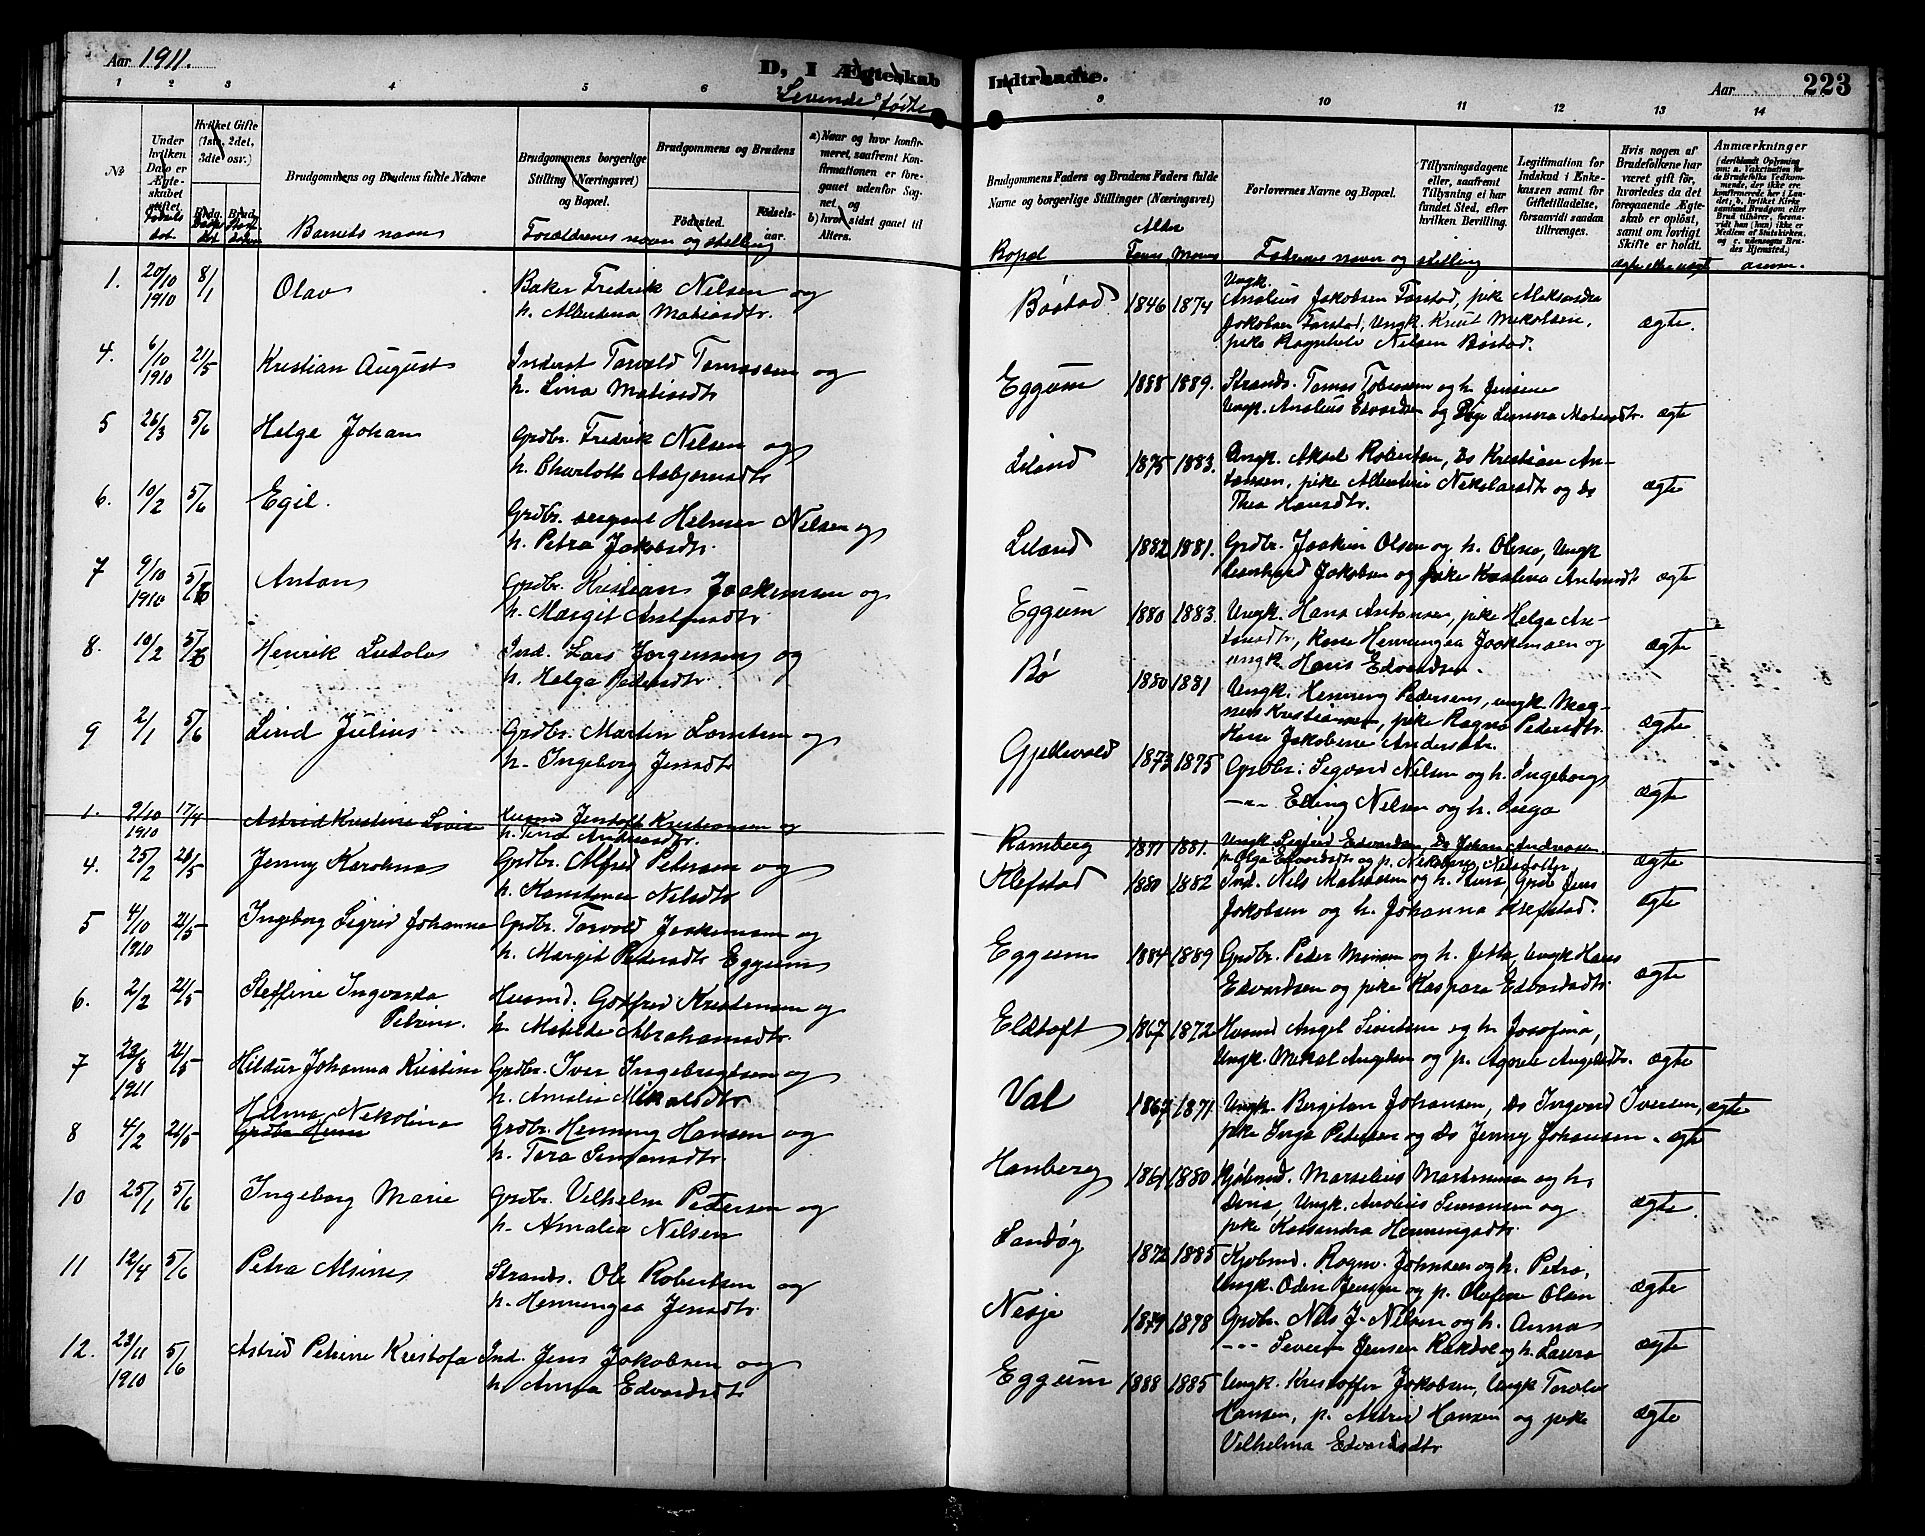 Aar 1911.
D, I Ægteskab Indtraadte.
Levende fødte
Aar 223
1 2 3 4 5 6 9 10 11 12 13 14
No
Under hvilken Dato er Ægteskabet stiftet
Hvilket Gifte (1ste, 2det, 3die osv.)
Brudg. Brud.
Brudgommens og Brudens fulde Navne
Barnets navn
Brudgommens borgerlige Stilling (Næringsvei) og Bopæl.
Forældrenes navn og stilling
Brudgommens og Brudens
Fødested. Fødselsaar.
a) Naar og hvor konfirmeret, saafremt Konfirmationen er foregaaet udenfor Sognet, og
b) hvor sidst gaaet til Alters.
Brudgommens Faders og Brudens Faders fulde Navne og borgerlige Stillinger (Næringsvei)
Bopæl
Forlovernes Navne og Bopæl.
Fadernes navn og stilling
Tillysningsdagene eller, saafremt Tillysning ei har fundet Sted, efter hvilken Bevilling.
Legitimation for Indskud i Enkekassen samt for Giftetilladelse, forsaavidt saadan tiltrænges.
Hvis nogen af Brudefolkene har været gift før, hvorledes da det foregaaende Ægteskab er opløst, samt om lovligt Skifte er holdt.
ægte eller uægte
Anmærkninger
anm.
1. 20/10 1910 8/1 Olav Baker Fredrik Nilsen og
h. Albertina Matiasdtr.
Bøstad 1846 1874 Ungk. Analius Jakobsen Farstad, pike Aleksandra
Jokobsen Farstad, Ungk. Knut Mekolsen,
pike Ragnhild Nilsen Bøstad. ægte.
4. 6/10 1910 21/5 Kristian August Inderst Torvald Tomassen og
h. Lina Matisdtr
Eggum 1888 1889. Strands. Tomas Tobiassen og h. Jensine
Ungk. Analius Edvardsen og ægte
5 26/3 5/6 Helge Johan Grdbr. Fredrik Nilsen og
h. Charlotte Asbjørnsdtr
Liland 1875 1883. Ungk. Aksel Robertsen, Do Kristian An-
tonsen, pike Albertine Nikolaisdtr og do
Thea Hansdtr. ægte
6. 10/2 5/6 Egil. Grdbr. sergent Helmer Nilsen og
h. Petra Jakobsdtr.
Liland 1882 1881. Grdbr. Joakim Olsen og h. Olina, Ungk
Leonhard Jakobsen og pike Karolina Antonsdtr ægte
7 9/10 1910 5/6 Anton Grdbr. Kristian Joakimsen og
h. Margit Antonsdtr.
Eggum 1880 1883. Ungk. Hans Antonsen, pike Helga An-
tonsdtr, Kone Henningea Joakimsen og
ungk. Hans Edvardsen. ægte
8. 10/2 5/6 Henrik Ludolv Ind. Lars Jørgensen og
h. Helga Pedersdtr.
Bø 1880 1881 Ungk. Henning Pedersen, ungk Mag-
nus Kristiansen, pike Ragna Pedersdtr
Kone Jakobine Andersdtr. ægte
9 2/1 5/6 Lind Julius Grdbr. Martin Lorntsen og
h. Ingeborg Jensdtr
Gjellevold 1873 1875 Grdbr: Sigvard Nilsen og h. Ingeborg
—"— Elling Nilsen og h. Inga ægte
1. 9/10 1910 17/4 Astrid Kristine Lovise Husmd Jentoft Kristiansen og
h. Tora Andreasdtr.
Ramberg 1871 1881. Ungk. Sigfred Edvardsen, Do Johan Andreasen
p. Olga Edvardsdtr og p. ægte
4. 25/2 21/5 Jenny Karolina Grdbr. Alfred Petersen og
h. Konstanse Nilsdtr
Klefstad 1880 1882 Ind. Nils Matiassen og h. Jens
Jokobsen og h. Johanna Klefstad. ægte
5 4/10 1910 21/5 Ingeborg Sigrid Johanna Grdbr. Torvald Joakimsen og
h. Margit Pedersdtr Eggum
Eggum 1884 1889 Grdbr. Peder Mikalsen og h. Jetta, Ungk Hans
Edvardsen og pike Kaspara Edvardsdtr. ægte
6. 2/2 21/5 Steffine Ingvarda
Petrine. Husmd. Gotfred Kristensen og
h. Matilde Abrahamsdtr.
Eltoft 1867 1872 Husmd Angel Sivertsen og h. Josefina,
Ungk. Mikal Angelsen og p. Agnete Angelsdtr. ægte
7 23/8 1911 21/5 Hildur Johanna Kristine Grdbr. Iver Ingebrigtsen og
h. Amalia Nikolaidtr
Val 1867 1871. Ungk. Bergiton Johansen, Do Ingvard Iversen, ægte
pike Inga Petersen og do Jenny Johansen. ægte
8 4/2 21/5 Helma Nikolina
Grdbr. Henning Hansen og
h. Tora Simonsdtr.
Hanberg 1861 1880 Kjøbmd. Marselius Martinusen og h.
Dina, Ungk. Analius Simonsen og
pike Kassandra Henningsdtr. ægte.
10 25/1 5/6 Ingeborg Marie Grdbr. Vilhelm Pedersen og
h. Amalia Nilsen
Sandøy 1872 1885 Kjøbmd. Ragnv. Johnsen og h. Petra,
Ungk. Oden Jensen og p. Olufine Olsen ægte
11 12/4 5/6 Petra Alsine Strands. Ole Robertsen og
h. Henningea Jensdtr.
Nesje 1879 1878 Grdbr. Nils J. Nilsen og h. Anna
—"— Severin Jensen og h. Laura ægte
12. 23/11 1910 5/6 Astrid Petrine Kristofa Ind. Jens Jokobsen og
h. Anna Edvardsdtr
Eggum 1888 1885 Ungk. Kristoffer Jokobsen, Ungk Torolv
Hansen, p. Astrid Hansen og pike
Vilhelma Edvardsdtr ægte